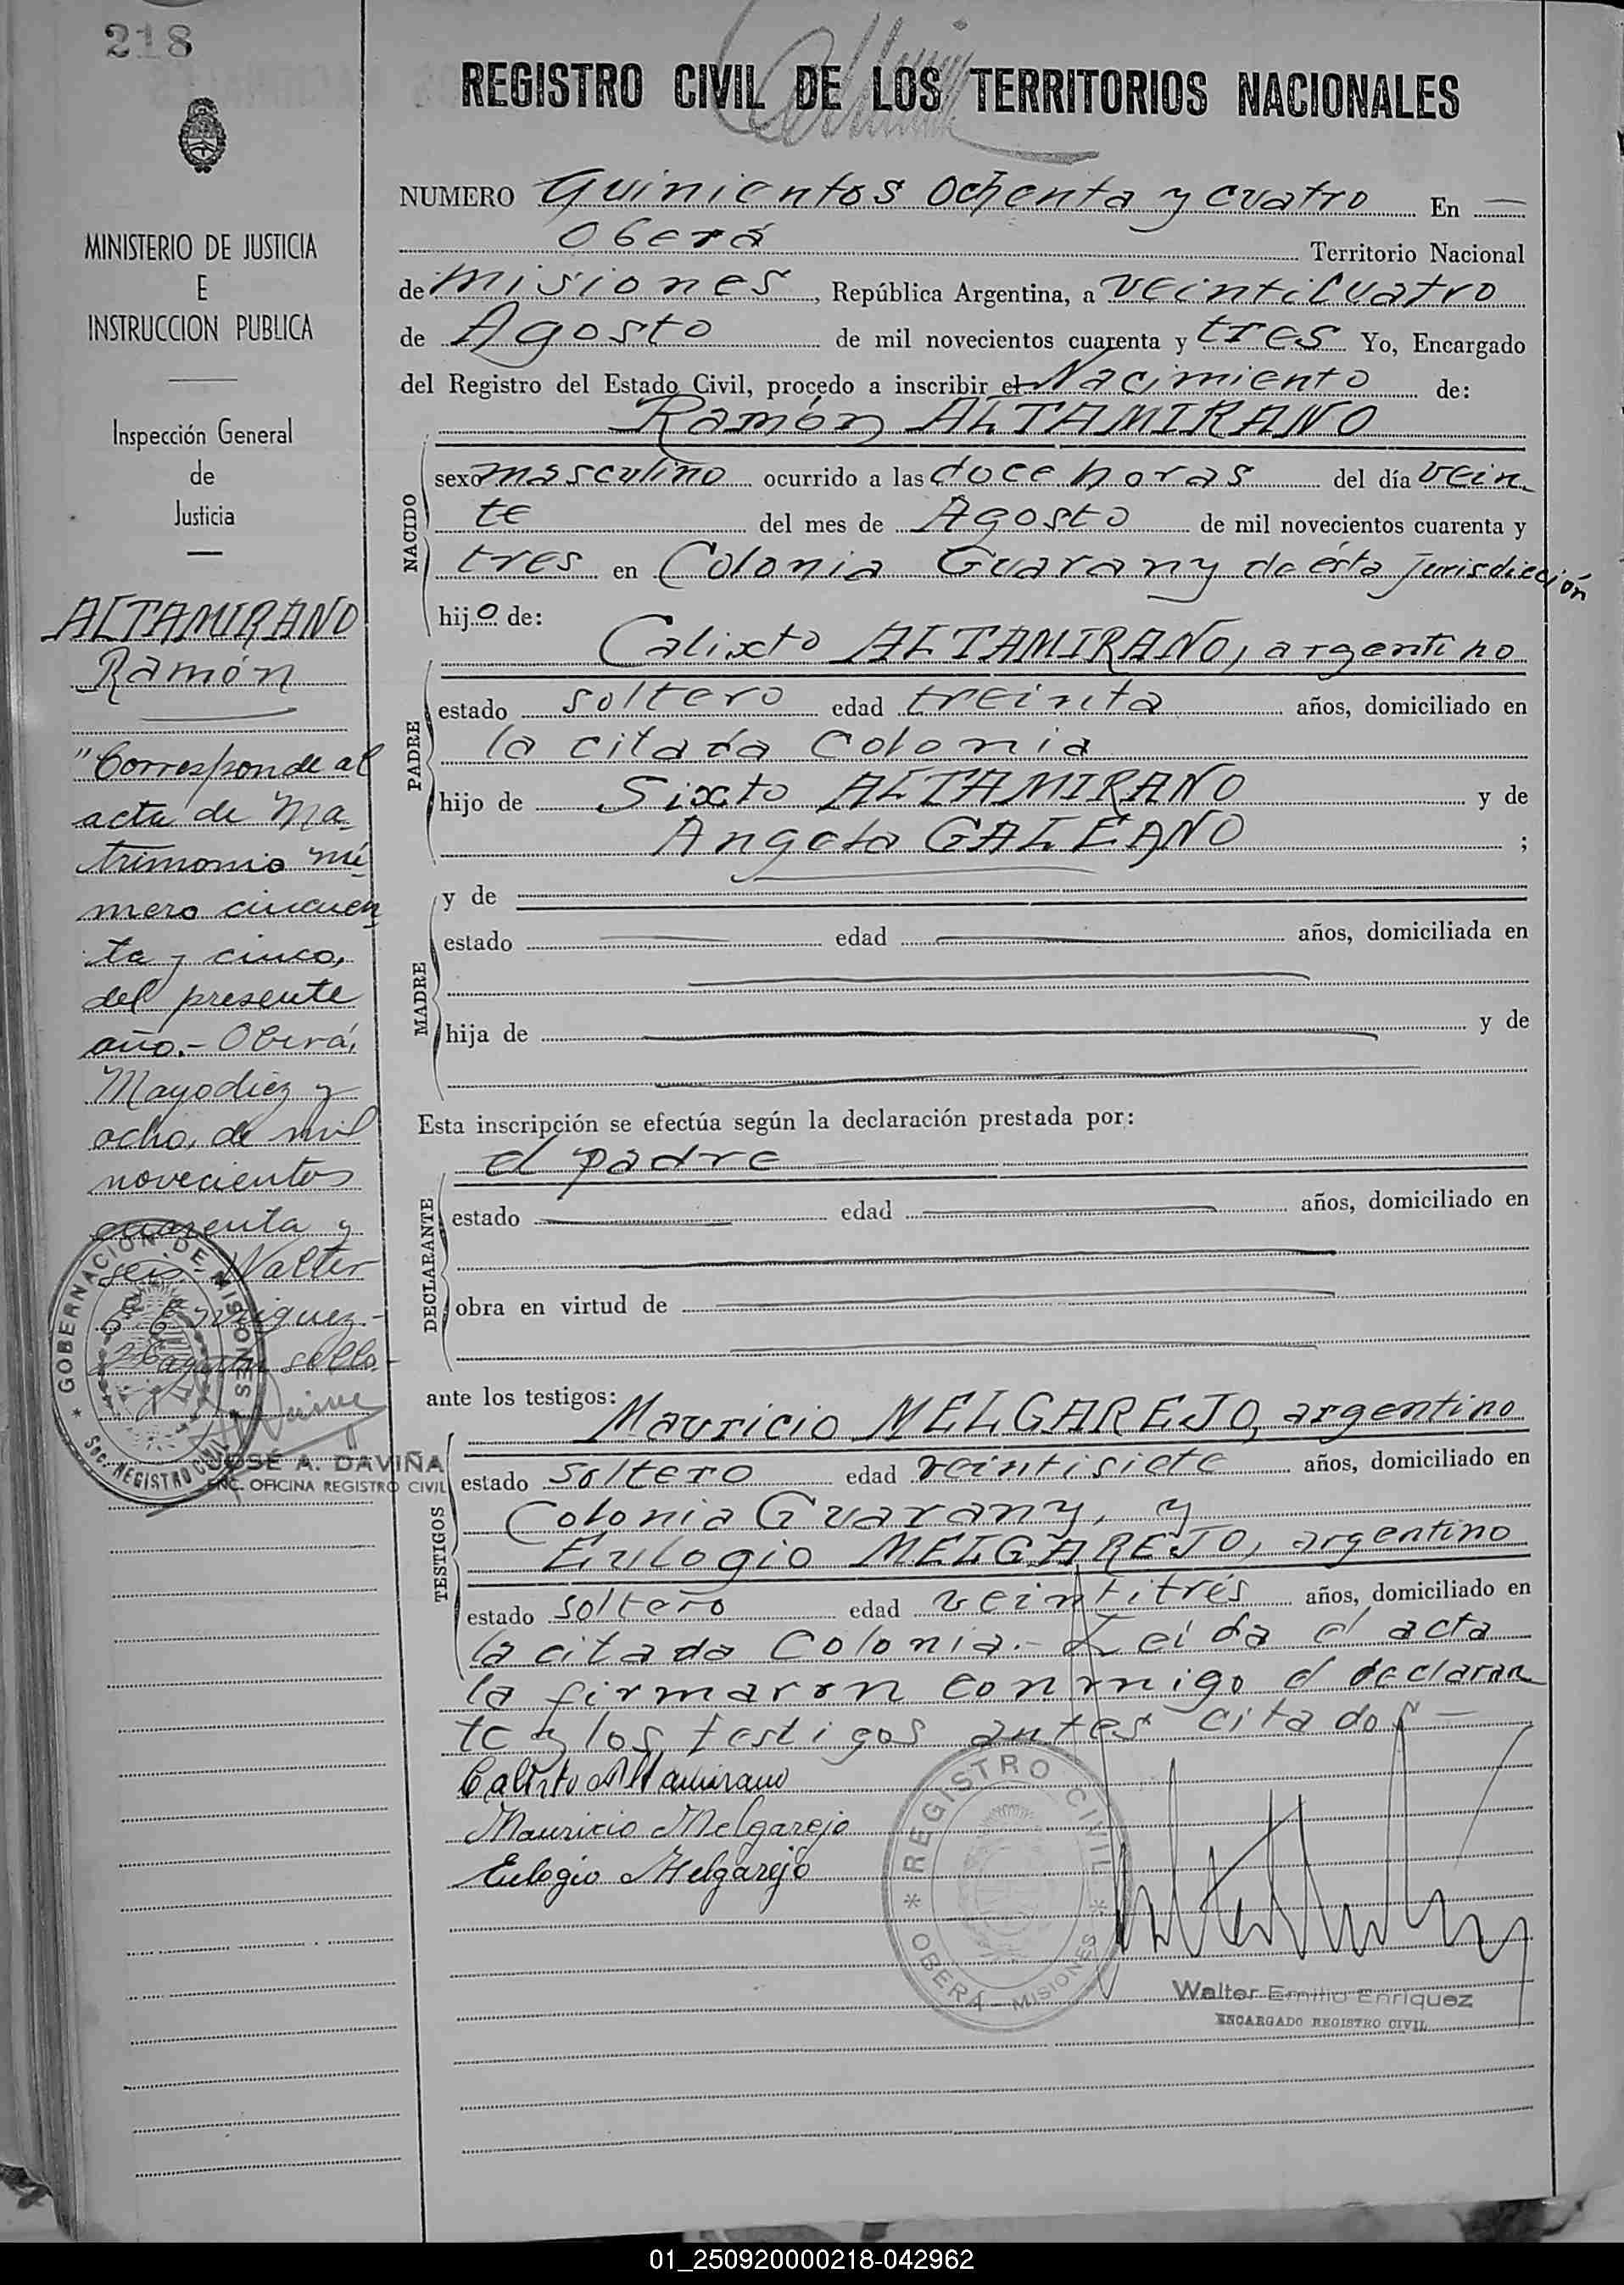 218
REGISTRO CIVIL DE LOS TERRITORIOS NACIONALES
MINISTERIO DE JUSTICIA
E
INSTRUCCION PUBLICA
Inspección General
de
Justicia
ALTAMIRANO
Ramón
"Corresponde al
acta de Ma-
trimonio nú-
mero cincuen
ta y cinco,
del presente
año.- Oberá,
Mayo diez y
ocho, de mil
novecientos
cuarenta y
seis.- Walter
E. Enriquez.-
sello.-
GOBERNACION DE MISIONES
Sec. REGISTRO CIVIL
JOSÉ A. DAVIÑA
ENC. OFICINA REGISTRO CIVIL
NUMERO Quinientos ochenta y cuatro En —
Oberá Territorio Nacional
de Misiones, República Argentina, a veinticuatro
de Agosto de mil novecientos cuarenta y tres Yo, Encargado
del Registro del Estado Civil, procedo a inscribir el Nacimiento de:
Ramón ALTAMIRANO
NACIDO
sexo masculino ocurrido a las doce horas del día vein-
te del mes de Agosto de mil novecientos cuarenta y
tres en Colonia Guarany de ésta jurisdicción
hijo de:
PADRE
Calixto ALTAMIRANO, argentino
estado soltero edad treinta años, domiciliado en
la citada Colonia
hijo de Sixto ALTAMIRANO y de
Angela GALEANO ;
MADRE
y de
estado edad años, domiciliada en
hija de y de
Esta inscripción se efectúa según la declaración prestada por:
el padre
DECLARANTE
estado edad años, domiciliado en
obra en virtud de
ante los testigos:
TESTIGOS
Mauricio MELGAREJO, argentino
estado soltero edad veintisiete años, domiciliado en
Colonia Guarany, y
Eulogio MELGAREJO, argentino
estado soltero edad veintitrés años, domiciliado en
la citada Colonia.- Leída el acta
la firmaron conmigo el declaran
te y los testigos antes citados —
Calixto Altamirano
Mauricio Melgarejo
Eulogio Melgarejo
REGISTRO CIVIL
OBERÁ - MISIONES
Walter Emilio Enriquez
ENCARGADO REGISTRO CIVIL
01_250920000218-042962